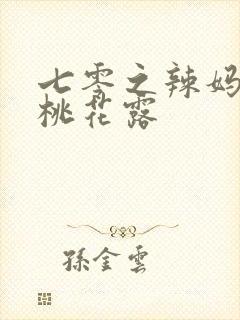 七零之辣妈
桃花露
孫金雲